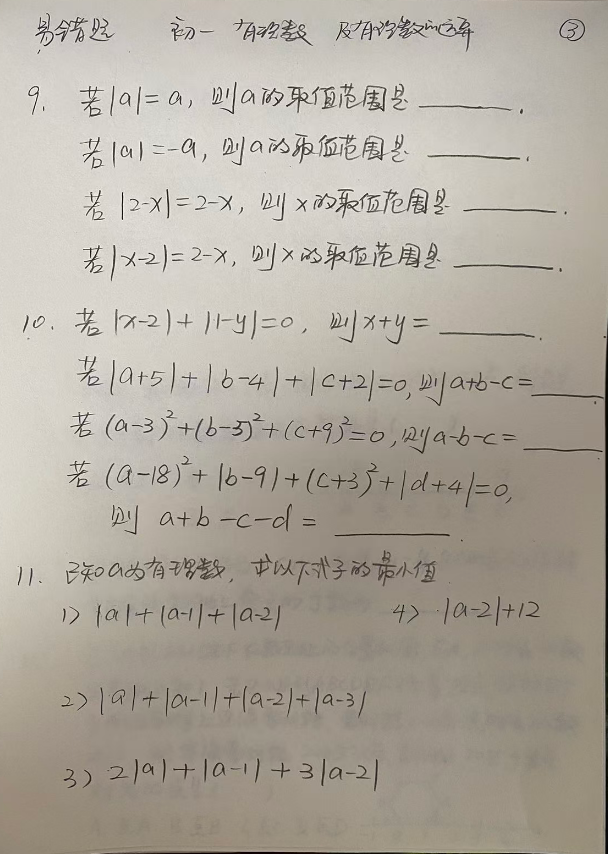 易错题 初一 有理数 及有理数的运算 ③
9. 若|a|=a, 则a的取值范围是______.
若|a|=-a, 则a的取值范围是______.
若|2-x|=2-x, 则x的取值范围是______.
若|x-2|=2-x, 则x的取值范围是______.
10. 若|x-2|+|1-y|=0, 则x+y=______.
若|a+5|+|b-4|+|c+2|=0, 则a+b-c=______
若(a-3)²+(b-5)²+(c+9)²=0, 则a-b-c=______
若(a-18)²+|b-9|+(c+3)²+|d+4|=0,
则 a+b-c-d=______.
11. 已知a为有理数, 求以下式子的最小值
1) |a|+|a-1|+|a-2| 4) |a-2|+12
2) |a|+|a-1|+|a-2|+|a-3|
3) 2|a|+|a-1|+3|a-2|